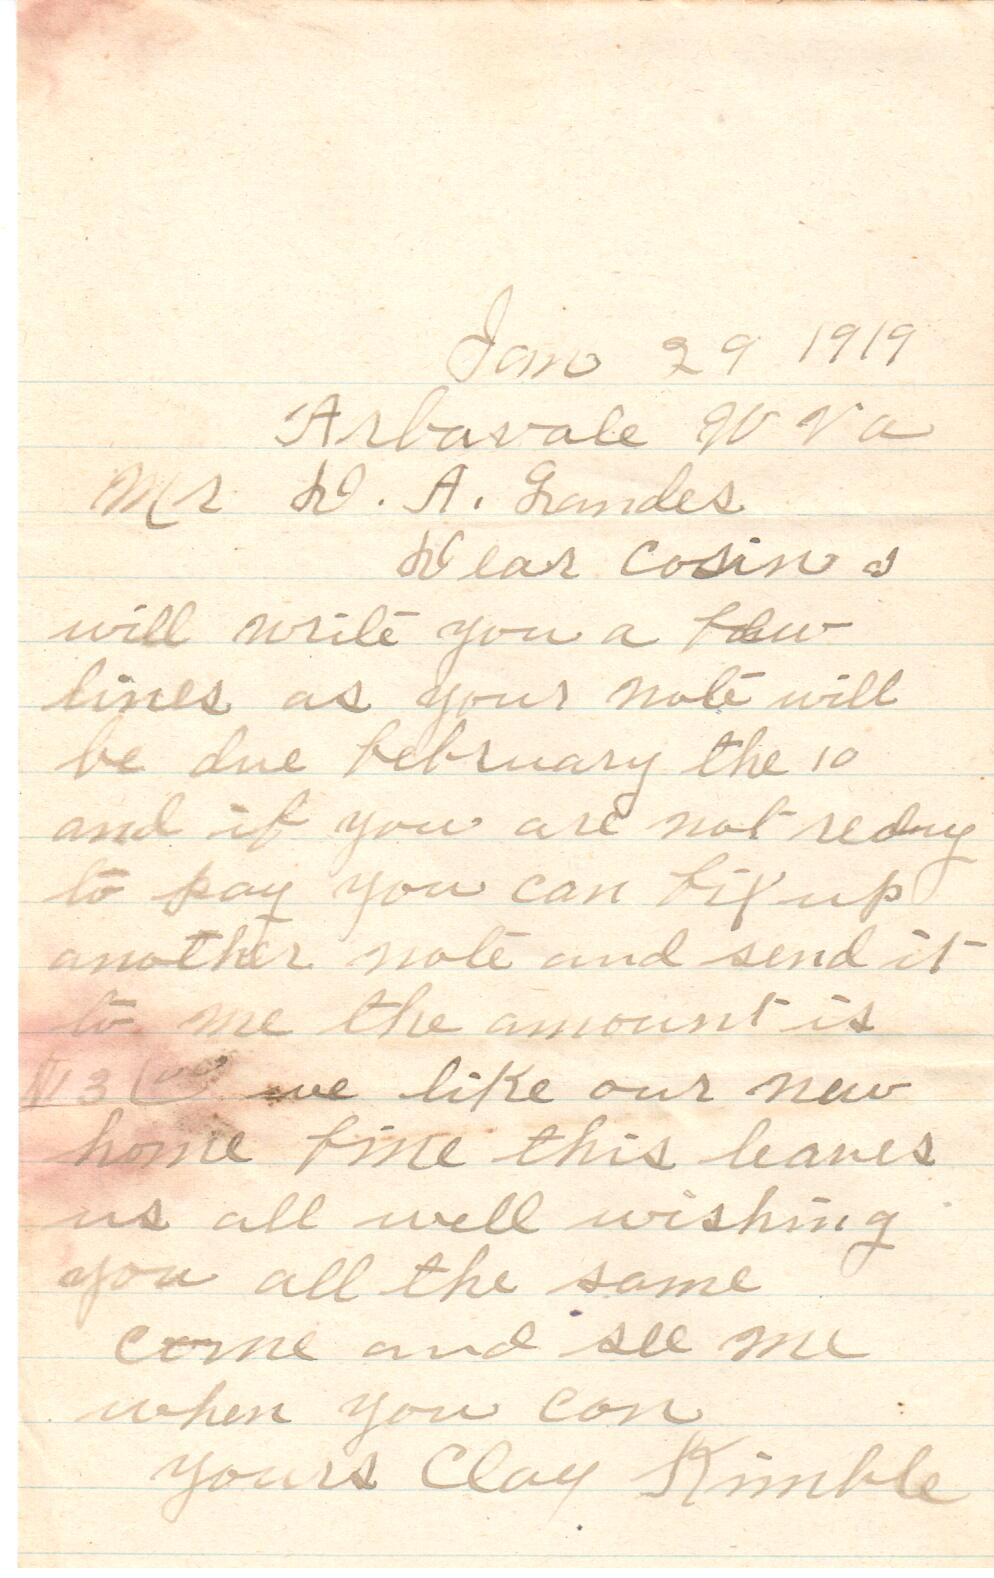 Jan 29 1919
Arbavale W Va
Mr D. A. Landes
Dear Cosin I
will write you a few
lines as your note will
be due february the 10
and if you are not redry
to pay you can fix up
another note and send it
to me the amount is
we like our new
home fine this leaves
us all well wishing
you all the same
come and see me
when you can
yours Clay Kimble